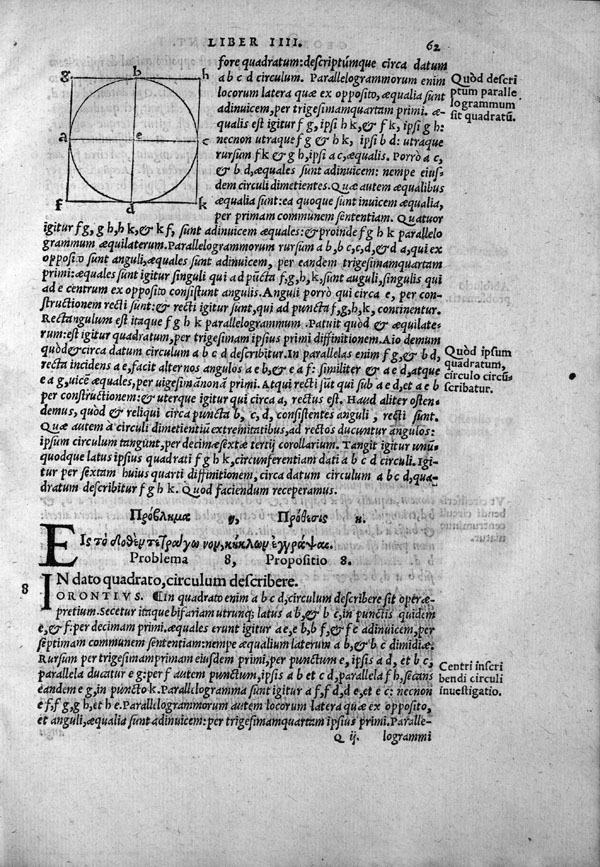 LIBER IIII.
62
g b h
a e c
f d k
fore quadratum: descriptúmque circa datum
a b c d circulum. Parallelogrammorum enim
locorum latera quæ ex opposito, æqualia sunt
adinuicem, per trigesimamquartam primi. æ-
qualis est igitur f g, ipsi h k, & f k, ipsi g h:
necnon utraque f g & h k, ipsi b d: utraque
rursum f k & g h, ipsi a c, æqualis. Porrò a c,
& b d, æquales sunt adinuicem: nempe eius-
dem circuli dimetientes. Quæ autem æqualibus
æqualia sunt: ea quoque sunt inuicem æqualia,
per primam communem sententiam. Quatuor
igitur f g, g h, h k, & k f, sunt adinuicem æquales: & proinde f g h k parallelo
grammum æquilaterum. Parallelogrammorum rursum a b, b c, c d, & d a, qui ex
opposito sunt anguli, æquales sunt adinuicem, per eandem trigesimamquartam
primi: æquales sunt igitur singuli qui ad pūcta f, g, h, k, sunt auguli, singulis qui
ad e centrum ex opposito consistunt angulis. Anguli porrò qui circa e, per con-
structionem recti sunt: & recti igitur sunt, qui ad puncta f, g, h, k, continentur.
Rectangulum est itaque f g h k parallelogrammum. Patuit quòd & æquilate-
rum: est igitur quadratum, per trigesimam ipsius primi diffinitionem. Aio demum
quòd & circa datum circulum a b c d describitur. In parallelas enim f g, & b d,
recta incidens a e, facit alternos angulos a e b, & e a f: similiter & a e d, atque
e a g, uicē æquales, per uigesimānonā primi. Atqui recti sūt qui sub a e d, et a e b
per constructionem: & uterque igitur qui circa a, rectus est. Haud aliter osten-
demus, quòd & reliqui circa puncta b, c, d, consistentes anguli, recti sunt.
Quæ autem à circuli dimetientiū extremitatibus, ad rectos ducuntur angulos:
ipsum circulum tangunt, per decimæsextæ tertij corollarium. Tangit igitur unū-
quodque latus ipsius quadrati f g h k, circunferentiam dati a b c d circuli. Igi-
tur per sextam huius quarti diffinitionem, circa datum circulum a b c d, qua-
dratum describitur f g h k. Quod faciendum receperamus.
Quòd descri
ptum paralle
logrammum
sit quadratū.
Quòd ipsum
quadratum,
circulo circū
scribatur.
Πρόβλημα η, Πρόθεσις η.
Εἰς τὸ δοθὲν τετράγωνον, κύκλον ἐγγράψαι.
Problema 8, Propositio 8.
8 IN dato quadrato, circulum describere.
ORONTIVS. ¶ In quadratum enim a b c d, circulum describere sit operæ-
pretium. Secetur itaque bifariam utrunque latus a b, & b c, in punctis quidem
e, & f: per decimam primi. æquales erunt igitur a e, e b, b f, & f c adinuicem, per
septimam communem sententiam: nempe æqualium laterum a b, & b c dimidiæ.
Rursum per trigesimamprimam eiusdem primi, per punctum e, ipsis a d, et b c,
parallela ducatur e g: per f autem punctum, ipsis a b et c d, parallela f h, secans
eandem e g, in puncto k. Parallelogramma sunt igitur a f, f d, d e, et e c: necnon
e f, f g, g h, et h e. Parallelogrammorum autem locorum latera quæ ex opposito,
et anguli, æqualia sunt adinuicem: per trigesimamquartam ipsius primi. Paralle-
Centri inscri
bendi circuli
inuestigatio.
Q ij. logrammi